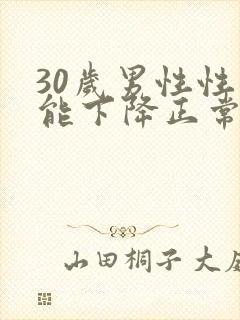 30歲男性性
能下降正常
山田桐子大